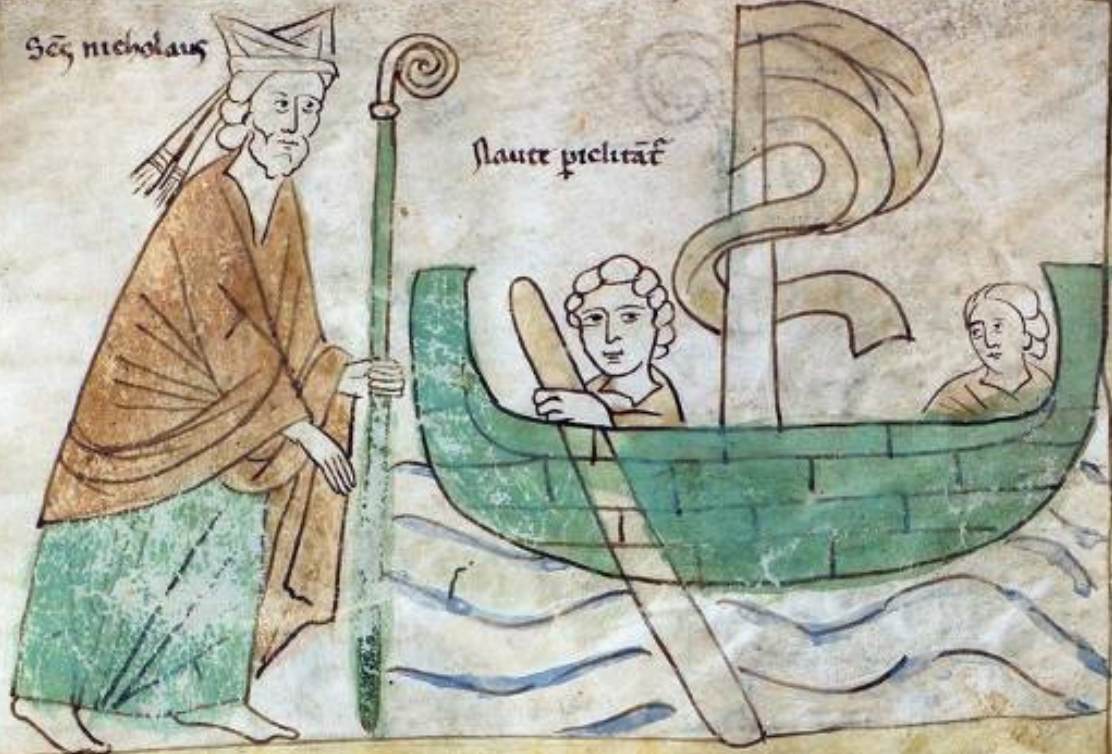 Scs nicholaus
Naute piclitat